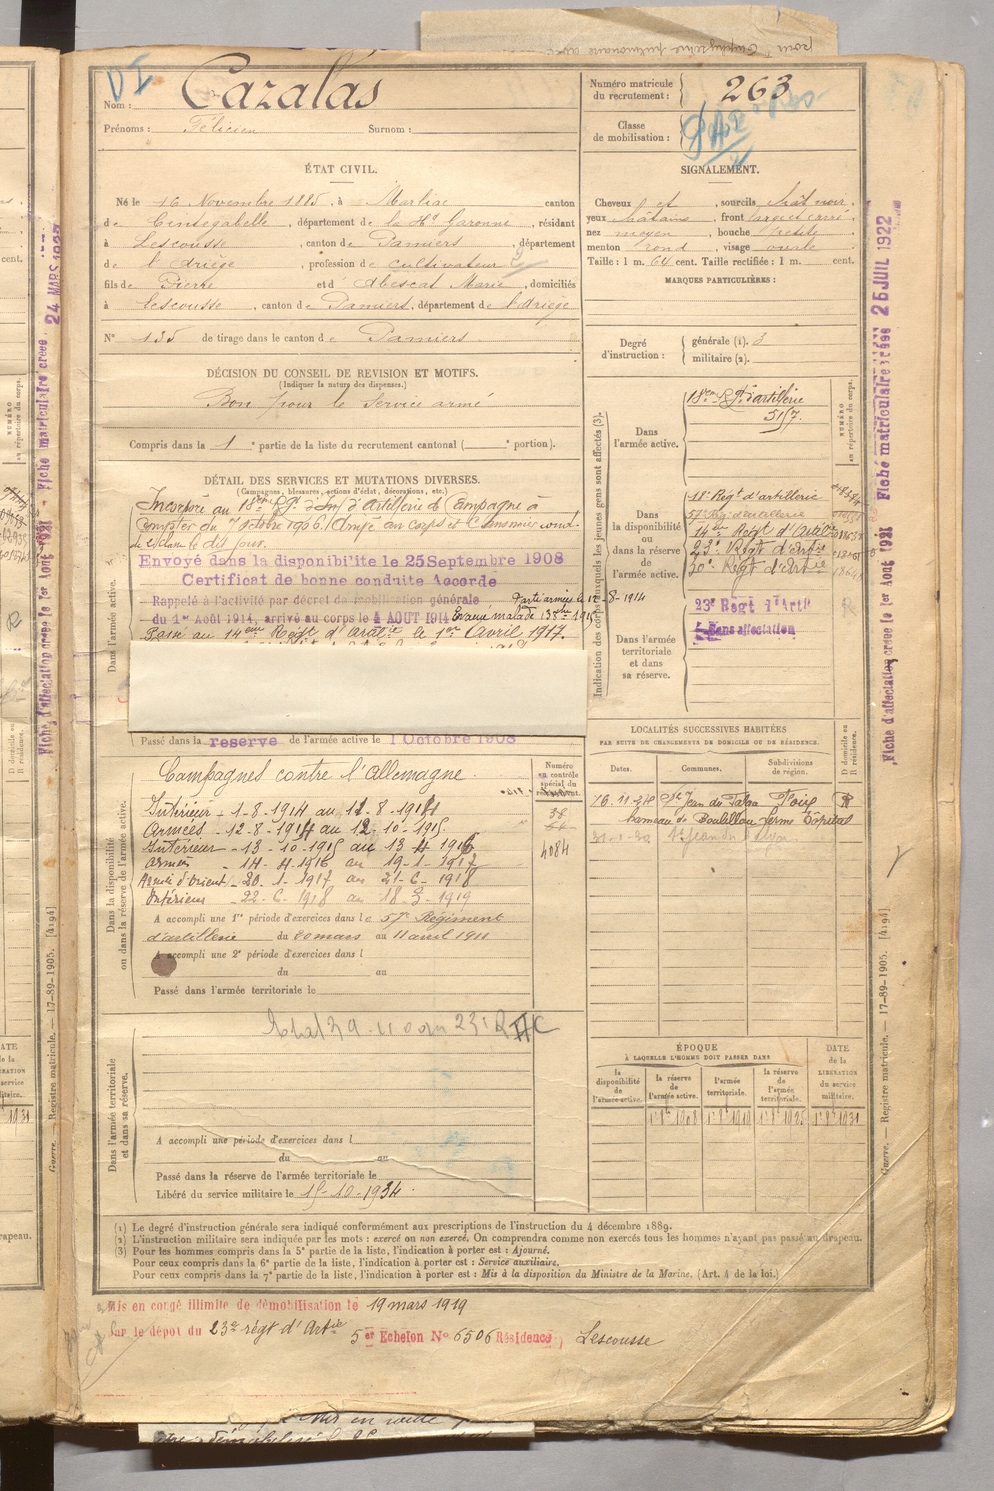 DI
Nom : Cazalas
Prénoms : Félicien Surnom :
ÉTAT CIVIL.
Né le 16 Novembre 1885, à Marliac canton
de Cintegabelle, département de la Hte Garonne, résidant
à Lescousse, canton de Pamiers, département
de l'Ariège, profession de cultivateur
fils de Pierre et d Abescat Marie, domiciliés
à Lescousse, canton de Pamiers, département de l'Ariège
N° 135 de tirage dans le canton de Pamiers
DÉCISION DU CONSEIL DE REVISION ET MOTIFS.
(Indiquer la nature des dispenses.)
Bon pour le Service armé
Compris dans la 1e partie de la liste du recrutement cantonal ( e portion).
DÉTAIL DES SERVICES ET MUTATIONS DIVERSES.
(Campagnes, blessures, actions d'éclat, décorations, etc.)
Incorporé au 18ème Rgt d'Artillerie de Campagne à
compter du 7 octobre 1906. Arrivé au corps et canonnier cond.
de 2e classe le dit jour.
Envoyé dans la disponibilité le 25 Septembre 1908
Certificat de bonne conduite Accordé
Rappelé à l'activité par décret de mobilisation générale Parti armées le 12-8-1914
du 1er Août 1914, arrivé au corps le 4 AOUT 1914 Evacué malade 13 8bre 1915
Passé au 14eme Régt d'Artie le 1er Avril 1917.
Passé dans la reserve de l'armée active le 1 Octobre 1908
Dans l'armée active.
Campagnes contre l'Allemagne.
Intérieur - 1-8-1914 au 11-8-1914
Armées - 12-8-1914 au 12-10-1915
Intérieur - 13-10-1915 au 13-4-1916
Armées - 14-4-1916 au 19-1-1917
Armée d'Orient - 20-1-1917 au 21-6-1918
Intérieur - 22-6-1918 au 18-3-1919
A accompli une 1re période d'exercices dans le 57e Régiment
d'artillerie du 20 mars au 11 avril 1911
A accompli une 2e période d'exercices dans l
du au
Passé dans l'armée territoriale le
Dans la disponibilité ou dans la réserve de l'armée active.
Numéro au contrôle spécial du recrutement.
38
64
4084
A accompli une période d'exercices dans l
du au
Passé dans la réserve de l'armée territoriale le
Libéré du service militaire le 15-10-1934.
Dans l'armée territoriale et dans sa réserve.
Numéro matricule du recrutement : 263
Classe de mobilisation :
SIGNALEMENT.
Cheveux et, sourcils chât noir,
yeux châtains, front large et carré,
nez moyen, bouche petite
menton rond, visage ovale
Taille : 1 m. 64 cent. Taille rectifiée : 1 m. cent.
MARQUES PARTICULIÈRES :
Degré d'instruction : générale (1). 3
militaire (2).
Indication des corps auxquels les jeunes gens sont affectés (3).
NUMÉRO au répertoire du corps.
Dans l'armée active.
18e Rgt d'artillerie
5157
Dans la disponibilité ou dans la réserve de l'armée active.
18e Régt d'artillerie
57e Rgt d'artillerie
14me Régt d'Artie
23e Régt d'Artie
20e Régt d'Artie
Dans l'armée territoriale et dans sa réserve.
23e Regt d'Artie
Sans affectation
LOCALITÉS SUCCESSIVES HABITÉES
PAR SUITE DE CHANGEMENTS DE DOMICILE OU DE RÉSIDENCE.
Dates. Communes. Subdivisions de région. D domicile ou R résidence.
16.11.24 St Jean du Falga Foix R
hameau de Boulillou ferme
ÉPOQUE
À LAQUELLE L'HOMME DOIT PASSER DANS
la disponibilité de l'armée active. la réserve de l'armée active. l'armée territoriale. la réserve de l'armée territoriale. DATE de la LIBÉRATION du service militaire.
1er 8e 1908 1er 8e 1919 1er 8e 1925 1er 8e 1931
(1) Le degré d'instruction générale sera indiqué conformément aux prescriptions de l'instruction du 4 décembre 1889.
(2) L'instruction militaire sera indiquée par les mots : exercé ou non exercé. On comprendra comme non exercés tous les hommes n'ayant pas passé au drapeau.
(3) Pour les hommes compris dans la 5e partie de la liste, l'indication à porter est : Ajourné.
Pour ceux compris dans la 6e partie de la liste, l'indication à porter est : Service auxiliaire.
Pour ceux compris dans la 7e partie de la liste, l'indication à porter est : Mis à la disposition du Ministre de la Marine. (Art. 4 de la loi.)
Mis en congé illimité de démobilisation le 19 mars 1919
Sur le dépôt du 23e régt d'Artie 5er Echelon N° 6506 Résidence, Lescousse
Fiche d'affectation créée le 1er Août 1921 Fiche matriculaire créée 26 JUIL 1922
Guerre. — Registre matricule. — 17-89-1905. [4194]
Fiche d'affectation créée le 1er Août 1921 - Fiche matriculaire créée.
24 MARS
Guerre. — Registre matricule. — 17-89-1905. [4194]